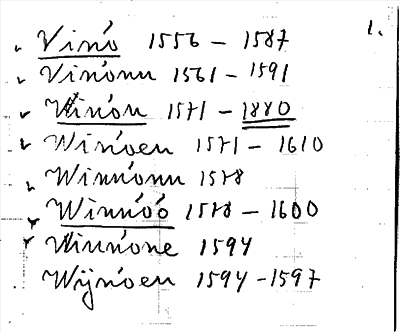 1.
Vinó 1556 – 1587
Vinónu 1561 – 1591
Winón 1571 – 1880
Winóen 1571 – 1610
Winnónn 1578
Winnóó 1578 – 1600
Winnóne 1594
Wijnóen 1594 – 1597